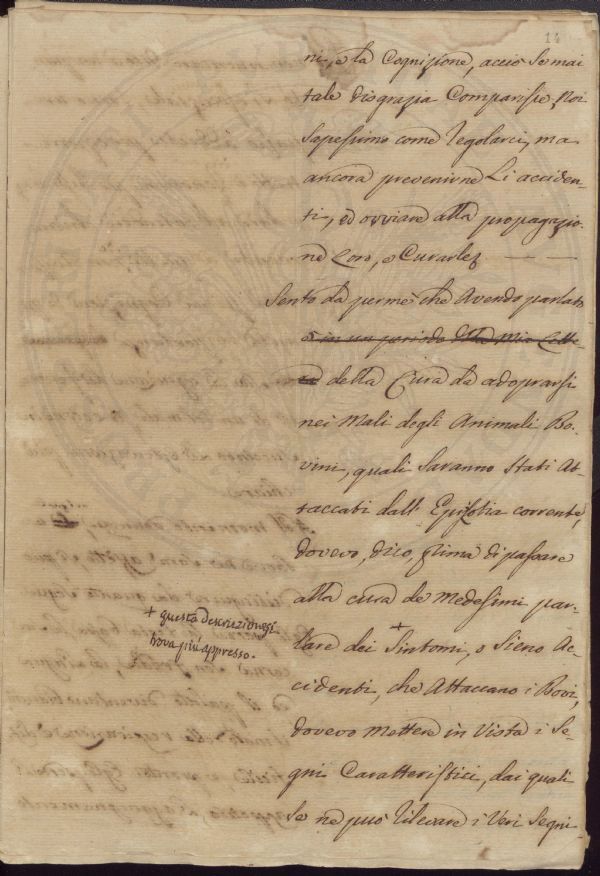 14
ni, e la Cognizione, acciò se mai
tale disgrazia Comparisse, Noi
Sapessimo come regolarci, ma
ancora prevenirne Li acciden-
ti, ed ovviare alla propagazio-
ne Loro, e Curarle
Sento da per me che Avendo parlato
in un periodo della Mia Lette-
ra della Cura da adoprarsi
nei Mali degli Animali Bo-
vini, quali Saranno Stati At-
taccati dall' Epizotia corrente,
dovevo, dico, prima di passare
alla cura de Medesimi par-
lare dei + Sintomi, o Sieno Ac-
cidenti, che Attaccano i Bovi,
dovevo Mettere in Vista i Se-
gni Caratteristici, dai quali
Se ne può rilevare i Veri Segni
+ questa descrizione si
trova più appresso.